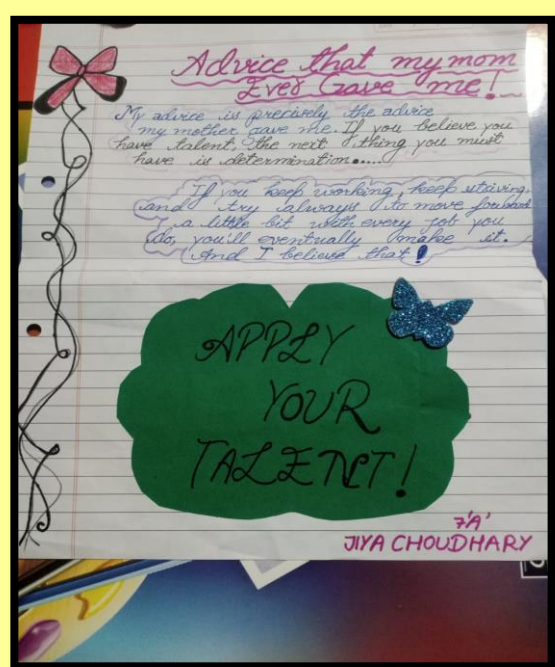 Advice that my mom
Ever Gave me!
My advice is precively the advice
my mother gave me. If you believe you
have talent, the next thing you must
have is determination.....
If you keep working, keep striving,
and try always to move forward
a little bit with every job you
do, you'll eventually make it.
And I believe that!
APPLY
YOUR
TALENT!
7'A'
JIYA CHOUDHARY